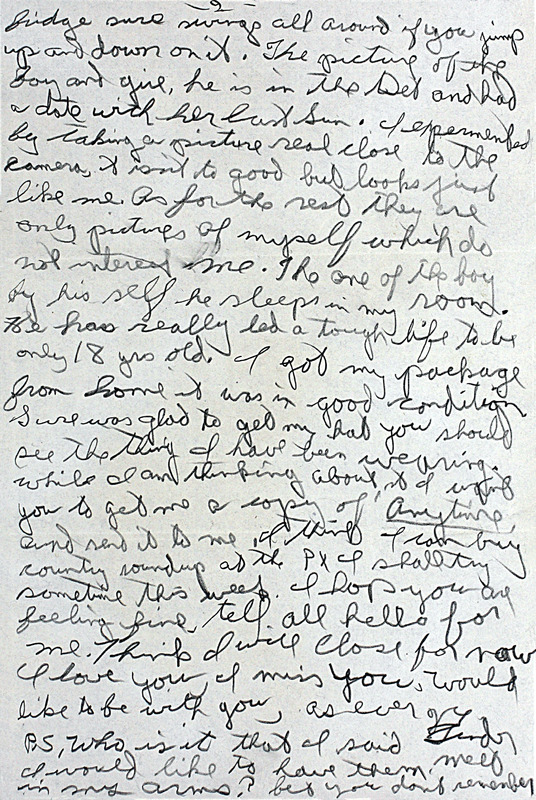 2
bridge sure swings all around if you jump
up and down on it. The picture of the
boy and girl, he is in the Det and had
a date with her last Sun. I expermented
by taking a picture real close to the
camera, it isit to good but looks just
like me. As for the rest they are
only pictures of myself which do
not interest me. The one of the boy
by his self he sleeps in my room.
He has really led a tough life to be
only 18 yrs old. I got my package
from home it was in good condition
Sure was glad to get my hat you should
see the thing I have been wearing.
while I am thinking about it I want
you to get me a copy of Anytime,
and send it to me, I think I can buy
country roundup at the PX I shall try
sometime this week. I hop you are
feeling fine, tell all hello for
me. Think I will close for now
I love you, I miss you, would
like to be with you, as ever
PS, Who is it that I said
I would like to have them melt
in my arms? bet you dont remember